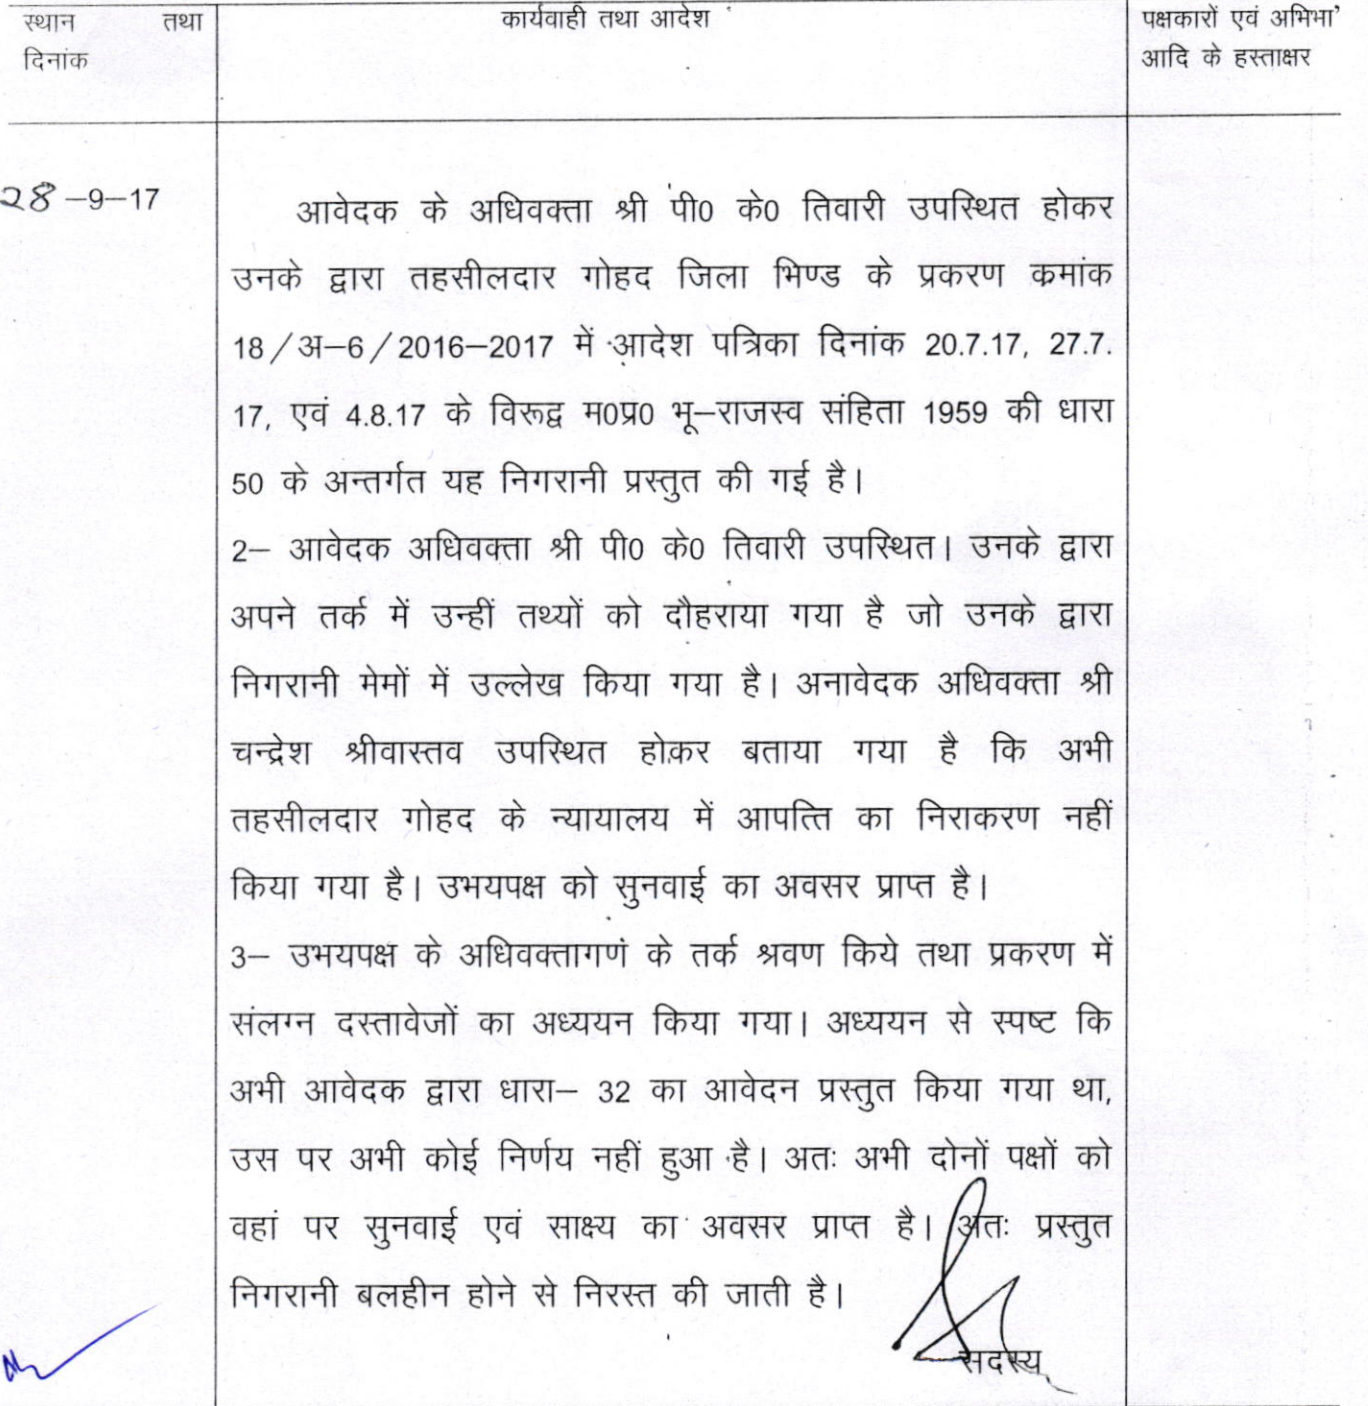 स्थान तथा
दिनांक
कार्यवाही तथा आदेश
पक्षकारों एवं अभिभा
आदि के हस्ताक्षर
28-9-17
आवेदक के अधिवक्ता श्री पी0 के0 तिवारी उपस्थित होकर
उनके द्वारा तहसीलदार गोहद जिला भिण्ड के प्रकरण कमांक
18/अ-6/2016-2017 में आदेश पत्रिका दिनांक 20.7.17, 27.7.
17, एवं 4.8.17 के विरूद्व म0प्र0 भू-राजस्व संहिता 1959 की धारा
50 के अन्तर्गत यह निगरानी प्रस्तुत की गई है।
2- आवेदक अधिवक्ता श्री पी0 के0 तिवारी उपस्थित। उनके द्वारा
अपने तर्क में उन्हीं तथ्यों को दौहराया गया है जो उनके द्वारा
निगरानी मेमों में उल्लेख किया गया है। अनावेदक अधिवक्ता श्री
चन्द्रेश श्रीवास्तव उपस्थित होकर बताया गया है कि अभी
तहसीलदार गोहद के न्यायालय में आपत्ति का निराकरण नहीं
किया गया है। उभयपक्ष को सुनवाई का अवसर प्राप्त है।
3- उभयपक्ष के अधिवक्तागणं के तर्क श्रवण किये तथा प्रकरण में
संलग्न दस्तावेजों का अध्ययन किया गया। अध्ययन से स्पष्ट कि
अभी आवेदक द्वारा धारा- 32 का आवेदन प्रस्तुत किया गया था,
उस पर अभी कोई निर्णय नहीं हुआ है। अतः अभी दोनों पक्षों को
वहां पर सुनवाई एवं साक्ष्य का अवसर प्राप्त है। अतः प्रस्तुत
निगरानी बलहीन होने से निरस्त की जाती है।
सदस्य